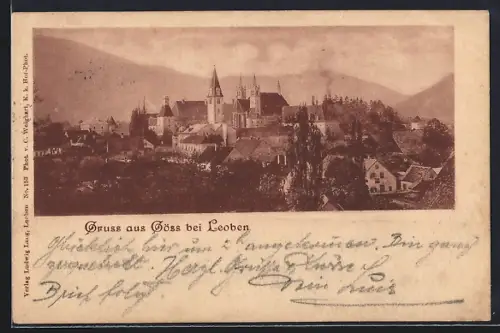 Verlag Ludwig Lang, Leoben No. 153 Phot. v. C. Weighart, K. k. Hof-Phot.
Gruss aus Göss bei Leoben
Glücklich hier um 2 angekommen. Bin ganz
Herzl. Grüße
Brief folgt. Dein